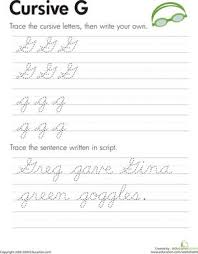 Cursive G
Trace the cursive letters, then write your own.
G G G
G G G
g g g
g g g
Trace the sentence written in script.
Greg gave Gina
green goggles.